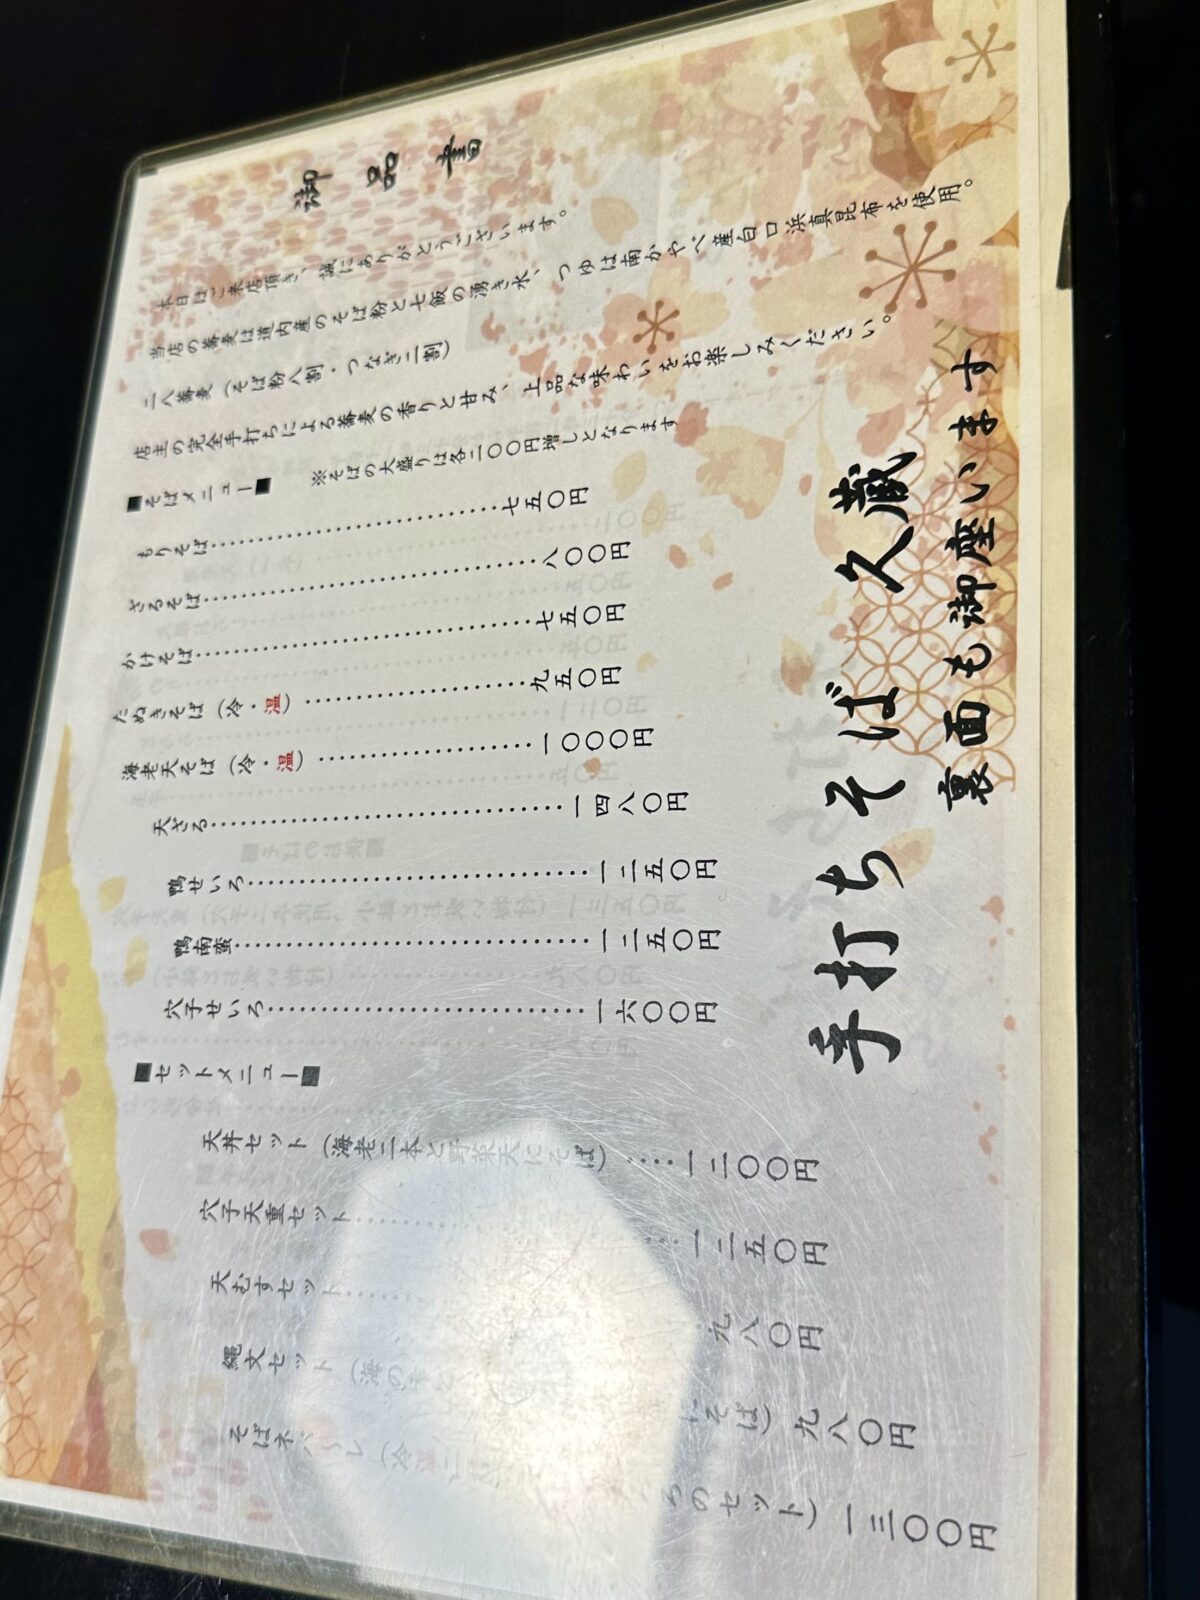 御品書
本日はご来店頂き、誠にありがとうございます。
当店の蕎麦は道内産のそば粉と七飯の湧き水、つゆは南かやべ産白口浜真昆布を使用。
二八蕎麦(そば粉八割・つなぎ二割)
店主の完全手打ちによる蕎麦の香りと甘み、上品な味わいをお楽しみください。
■そばメニュー■ ※そばの大盛りは各二〇〇円増しとなります
もりそば………七五〇円
ざるそば………八〇〇円
かけそば………七五〇円
たぬきそば(冷・温)………九五〇円
海老天そば(冷・温)………一〇〇〇円
天ざる………一四八〇円
鴨せいろ………一二五〇円
鴨南蛮………一二五〇円
穴子せいろ………一六〇〇円
■セットメニュー■
天丼セット(海老二本と野菜天にそば)……一二〇〇円
穴子天重セット………一二五〇円
天むすセット………九八〇円
縄文セット(海の幸 にそば)九八〇円
そば (冷 のセット)一三〇〇円
手打ちそば 久蔵
裏面も御座います